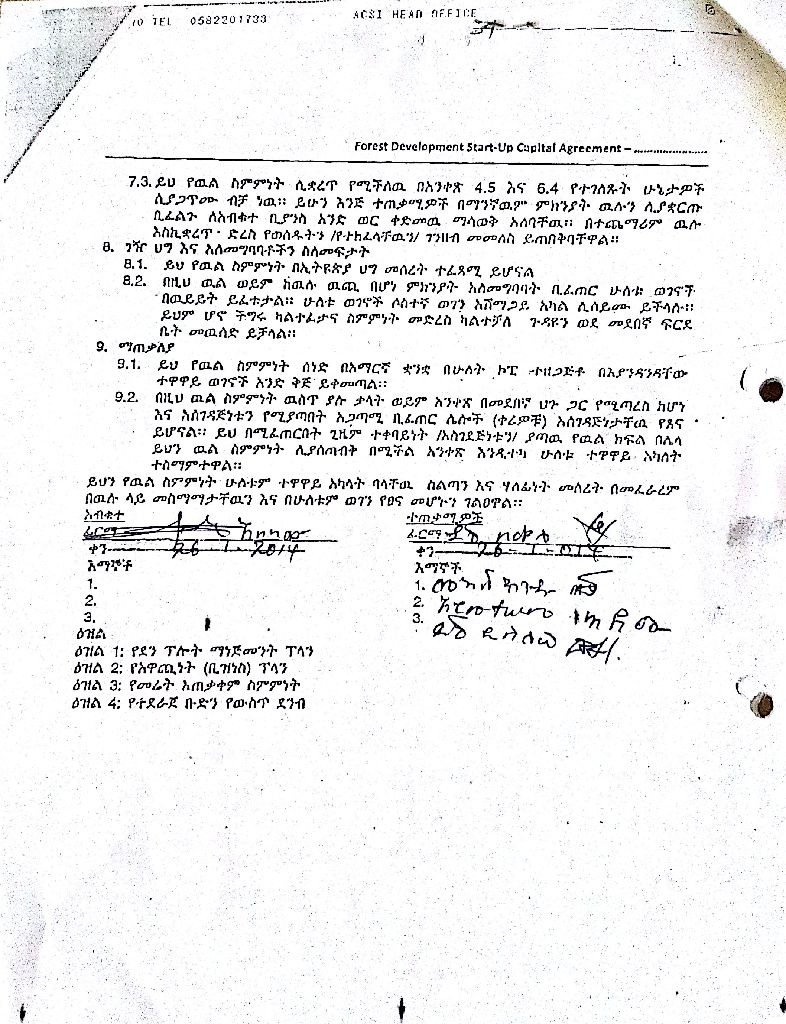 TEL 0582201733
ACSI HEAD OFFICE
Forest Development Start-Up Capital Agreement – ......................
7.3. ይህ የዉል ስምምነት ሊቋረጥ የሚችለዉ በአንቀጽ 4.5 እና 6.4 የተገለጹት ሁኔታዎች
ሲያጋጥሙ ብቻ ነዉ፡፡ ይሁን እንጅ ተጠቃሚዎች በማንኛዉም ምክንያት ዉሉን ሊያቋርጡ
ቢፈልጉ ለአብቁተ ቢያንስ አንድ ወር ቀድመዉ ማሳወቅ አለባቸዉ፡፡ በተጨማሪም ዉሉ
እስኪቋረጥ ድረስ የወሰዱትን /የተከፈላቸዉን/ ገንዘብ መመለስ ይጠበቅባቸዋል፡፡
8. ገዥ ህግ እና አለመግባባቶችን ስለመፍታት
8.1. ይህ የዉል ስምምነት በኢትዮጵያ ህግ መሰረት ተፈጻሚ ይሆናል
8.2. በዚህ ዉል ወይም ከዉሉ ዉጪ በሆነ ምክንያት አለመግባባት ቢፈጠር ሁለቱ ወገኖች
በዉይይት ይፈቱታል፡፡ ሁለቱ ወገኖች ሶስተኛ ወገን አሸማጋይ አካል ሊሰይሙ ይችላሉ፡፡
ይህም ሆኖ ችግሩ ካልተፈታና ስምምነት መድረስ ካልተቻለ ጉዳዩን ወደ መደበኛ ፍርድ
ቤት መዉሰድ ይቻላል፡፡
9. ማጠቃለያ
9.1. ይህ የዉል ስምምነት ሰነድ በአማርኛ ቋንቋ በሁለት ኮፒ ተዘጋጅቶ በእያንዳንዳቸው
ተዋዋይ ወገኖች አንድ ቅጅ ይቀመጣል፡፡
9.2. በዚህ ዉል ስምምነት ዉስጥ ያሉ ቃላት ወይም አንቀጽ በመደበኛ ህጉ ጋር የሚጣረስ ከሆነ
እና አስገዳጅነቱን የሚያጣበት አጋጣሚ ቢፈጠር ሌሎች (ቀሪዎቹ) አስገዳጅነታቸዉ የጸና
ይሆናል፡፡ ይህ በሚፈጠርበት ጊዜም ተቀባይነት /አስገደጅነቱን/ ያጣዉ የዉል ክፍል በሌላ
ይህን ዉል ስምምነት ሊያስጣብቅ በሚችል አንቀጽ እንዲተካ ሁለቱ ተዋዋይ አካለት
ተስማምተዋል፡፡
ይህን የዉል ስምምነት ሁለቱም ተዋዋይ አካላት ባላቸዉ ስልጣን እና ሃለፊነት መሰረት በመፈራረም
በዉሉ ላይ መስማማታቸዉን እና በሁለቱም ወገን የፀና መሆኑን ገልፀዋል፡፡
አብቁተ
ፊርማ
ቀን 26-1-2014
እማኞች
1.
2.
3.
ተጠቃሚዎች
ፊርማ
ቀን 26-1-2014
እማኞች
1.
2.
3.
ዕዝል
ዕዝል 1: የደን ፕሎት ማነጅመንት ፕላን
ዕዝል 2: የአዋጪነት (ቢዝነስ) ፕላን
ዕዝል 3: የመሬት አጠቃቀም ስምምነት
ዕዝል 4: የተደራጀ ቡድን የውስጥ ደንብ